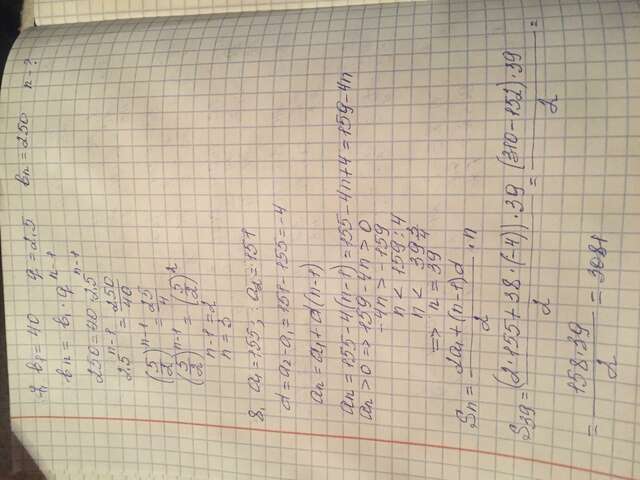 7. b₁ = 40 q = 2.5 bₙ = 250 n - ?
bₙ = b₁ · qⁿ⁻¹
250 = 40 · 2.5ⁿ⁻¹
2.5ⁿ⁻¹ = 250/40
(5/2)ⁿ⁻¹ = 25/4
(5/2)ⁿ⁻¹ = (5/2)²
n-1 = 2
n = 3
8. a₁ = 155; a₂ = 151
d = a₂ - a₁ = 151 - 155 = -4
aₙ = a₁ + d(n-1)
aₙ = 155 - 4(n-1) = 155 - 4n + 4 = 159 - 4n
aₙ > 0 => 159 - 4n > 0
-4n > -159
n < 159 : 4
n < 39 3/4
=> n = 39
Sₙ = (2a₁ + (n-1)d)/2 · n
S₃₉ = (2·155 + 38·(-4))·39/2 = (310 - 152)·39/2 =
= 158·39/2 = 3081